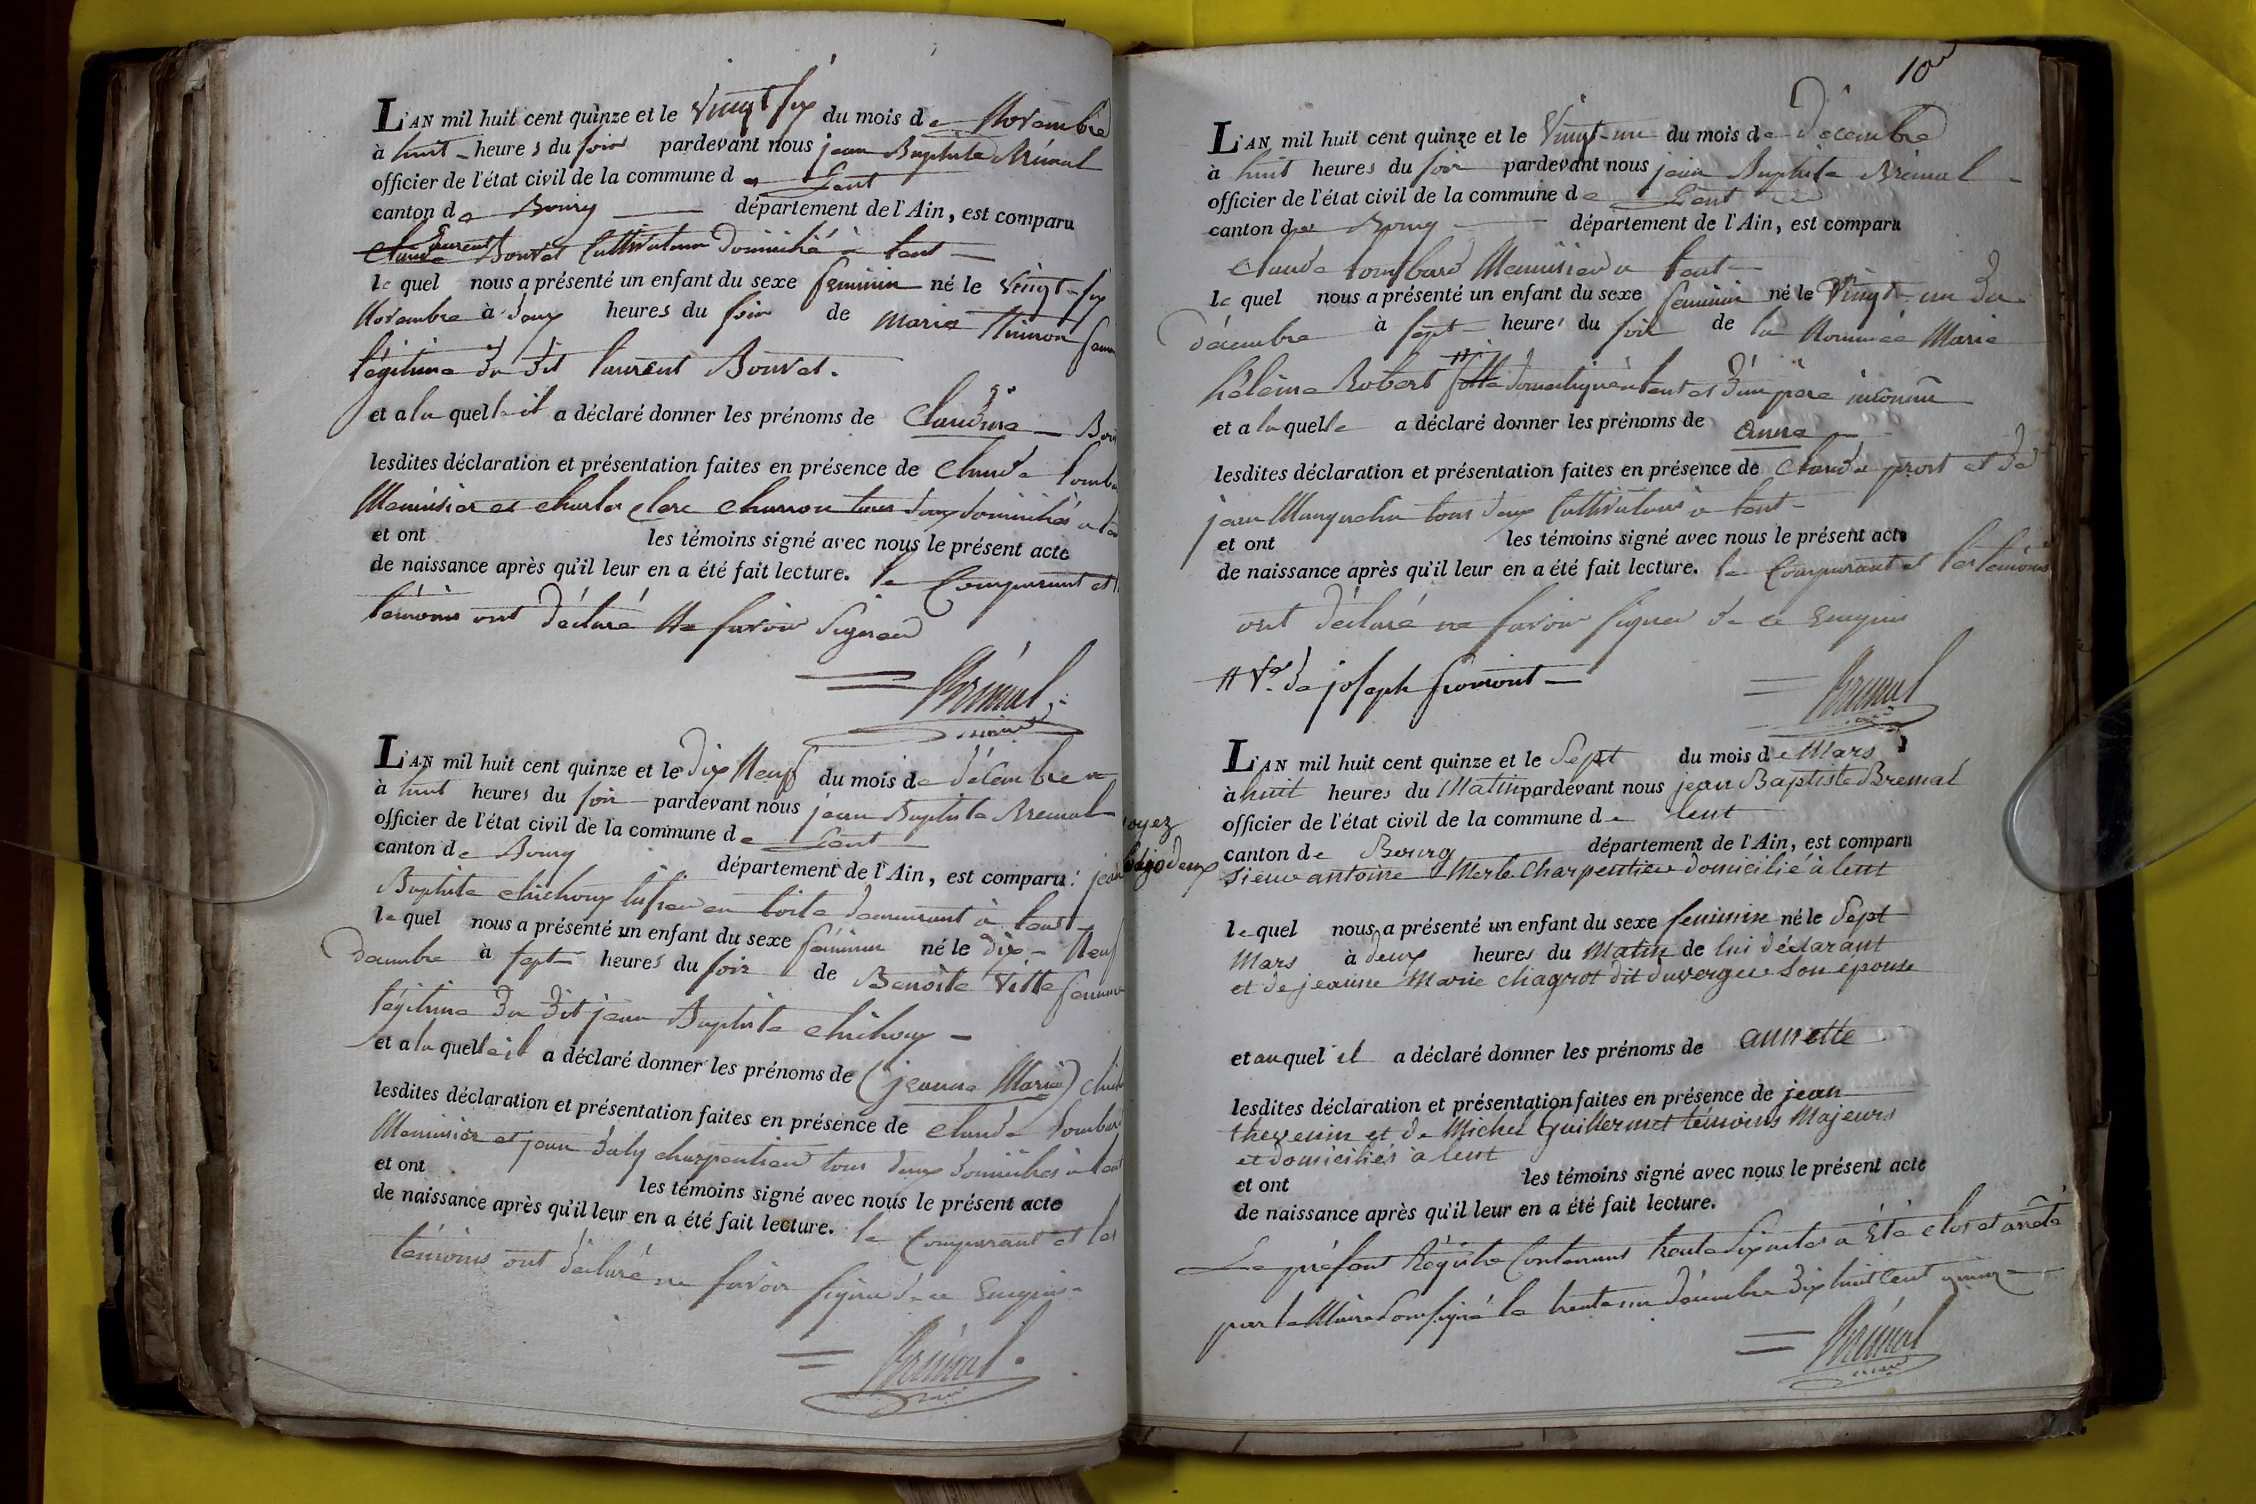 L'AN mil huit cent quinze et le vingt six du mois de Novembre
à huit heures du soir pardevant nous jean Baptiste Brémal
officier de l'état civil de la commune de Lent
canton de Bourg département de l'Ain, est comparu
Claude Laurent Bouvet Cultivateur Domicilié à Lent
le quel nous a présenté un enfant du sexe feminin né le vingt six
Novembre à deux heures du soir de Marie
légitime du dit laurent Bouvet.
et a la quelle il a déclaré donner les prénoms de Claudine
lesdites déclaration et présentation faites en présence de Claude
Menuisier et charle clerc charron tous deux domiciliés a
et ont les témoins signé avec nous le présent acte
de naissance après qu'il leur en a été fait lecture. le Comparant et
témoins ont déclaré Ne savoir signer
Brémal
L'AN mil huit cent quinze et le dix Neuf du mois de décembre
à huit heures du soir pardevant nous jean Baptiste Bremal
officier de l'état civil de la commune de Lent
canton de Bourg département de l'Ain, est comparu: jean
Baptiste chichoux tissier en toile demeurant à Lent
le quel nous a présenté un enfant du sexe féminin né le dix - Neuf
décembre à sept heures du soir de Benoite Vitte femme
légitime du dit jean Baptiste chichoux
et a la quelle il a déclaré donner les prénoms de (jeanne Marie)
lesdites déclaration et présentation faites en présence de claude Lombard
Menuisier et jean charpentier tous deux domiciliés à
et ont les témoins signé avec nous le présent acte
de naissance après qu'il leur en a été fait lecture. le Comparant et les
témoins ont déclaré ne savoir signer de ce Enquis
Brémal
10
L'AN mil huit cent quinze et le vingt-un du mois de décembre
à huit heures du soir pardevant nous jean Baptiste Brémal
officier de l'état civil de la commune de Lent
canton de Bourg département de l'Ain, est comparu
claude Lombard Menuisier a Lent
le quel nous a présenté un enfant du sexe feminin né le vingt-un du
décembre à sept heures du soir de la Nommée Marie
hélène Robert domestique a Lent et d'un père inconnu
et a la quelle a déclaré donner les prénoms de anne
lesdites déclaration et présentation faites en présence de Claude prost et de
jean tous deux Cultivateurs a Lent
et ont les témoins signé avec nous le présent acte
de naissance après qu'il leur en a été fait lecture. le Comparant et les témoins
ont déclaré ne savoir signer de ce Enquis
de joseph fromont
Brémal
L'AN mil huit cent quinze et le Sept du mois de Mars
à huit heures du Matin pardevant nous jean Baptiste Bremal
officier de l'état civil de la commune de lent
canton de Bourg département de l'Ain, est comparu
Sieur antoine Merle Charpentier domicilié à lent
le quel nous a présenté un enfant du sexe feminin né le Sept
Mars à deux heures du Matin de lui déclarant
et de jeanne Marie chagrot dit duverger Son épouse
et au quel il a déclaré donner les prénoms de annette
lesdites déclaration et présentation faites en présence de jean
thevenin et de Michel Guillermet témoins Majeurs
et domiciliés à lent
et ont les témoins signé avec nous le présent acte
de naissance après qu'il leur en a été fait lecture.
Le présent Régistre Contenant trente six actes a Eté clos et arrêté
par le Maire Soussigné le trente un décembre dix huit cent quinze
Brémal